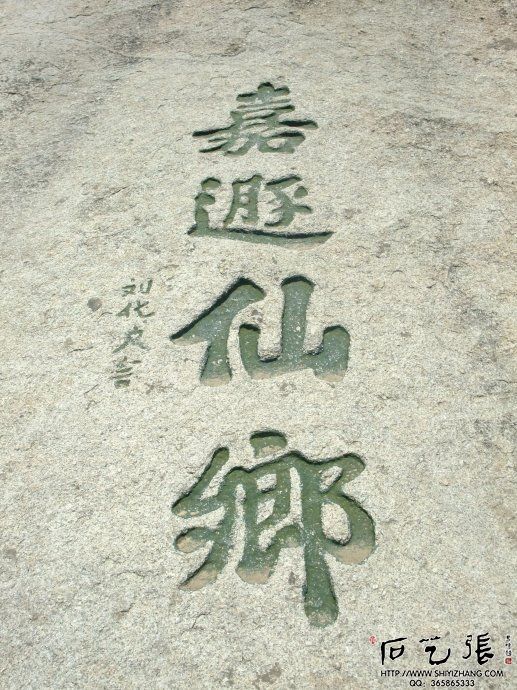 嘉遯仙鄉
刘化
石艺張
HTTP://WWW.SHIYIZHANG.COM
QQ: 365865333